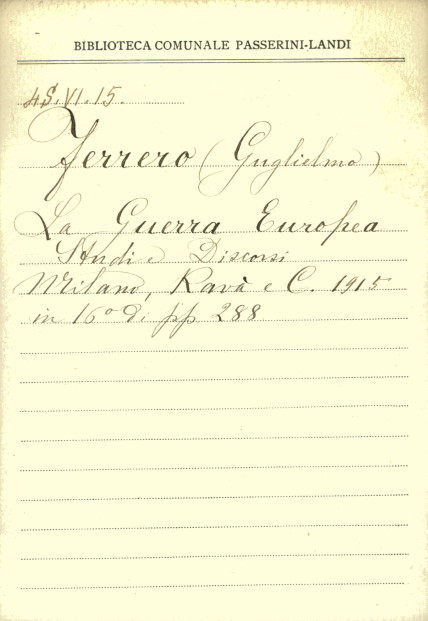 BIBLIOTECA COMUNALE PASSERINI-LANDI
4S.VI.15.
Ferrero (Guglielmo)
La Guerra Europea
Studi e Discorsi
Milano, Ravà e C. 1915
in 16° di pp 288